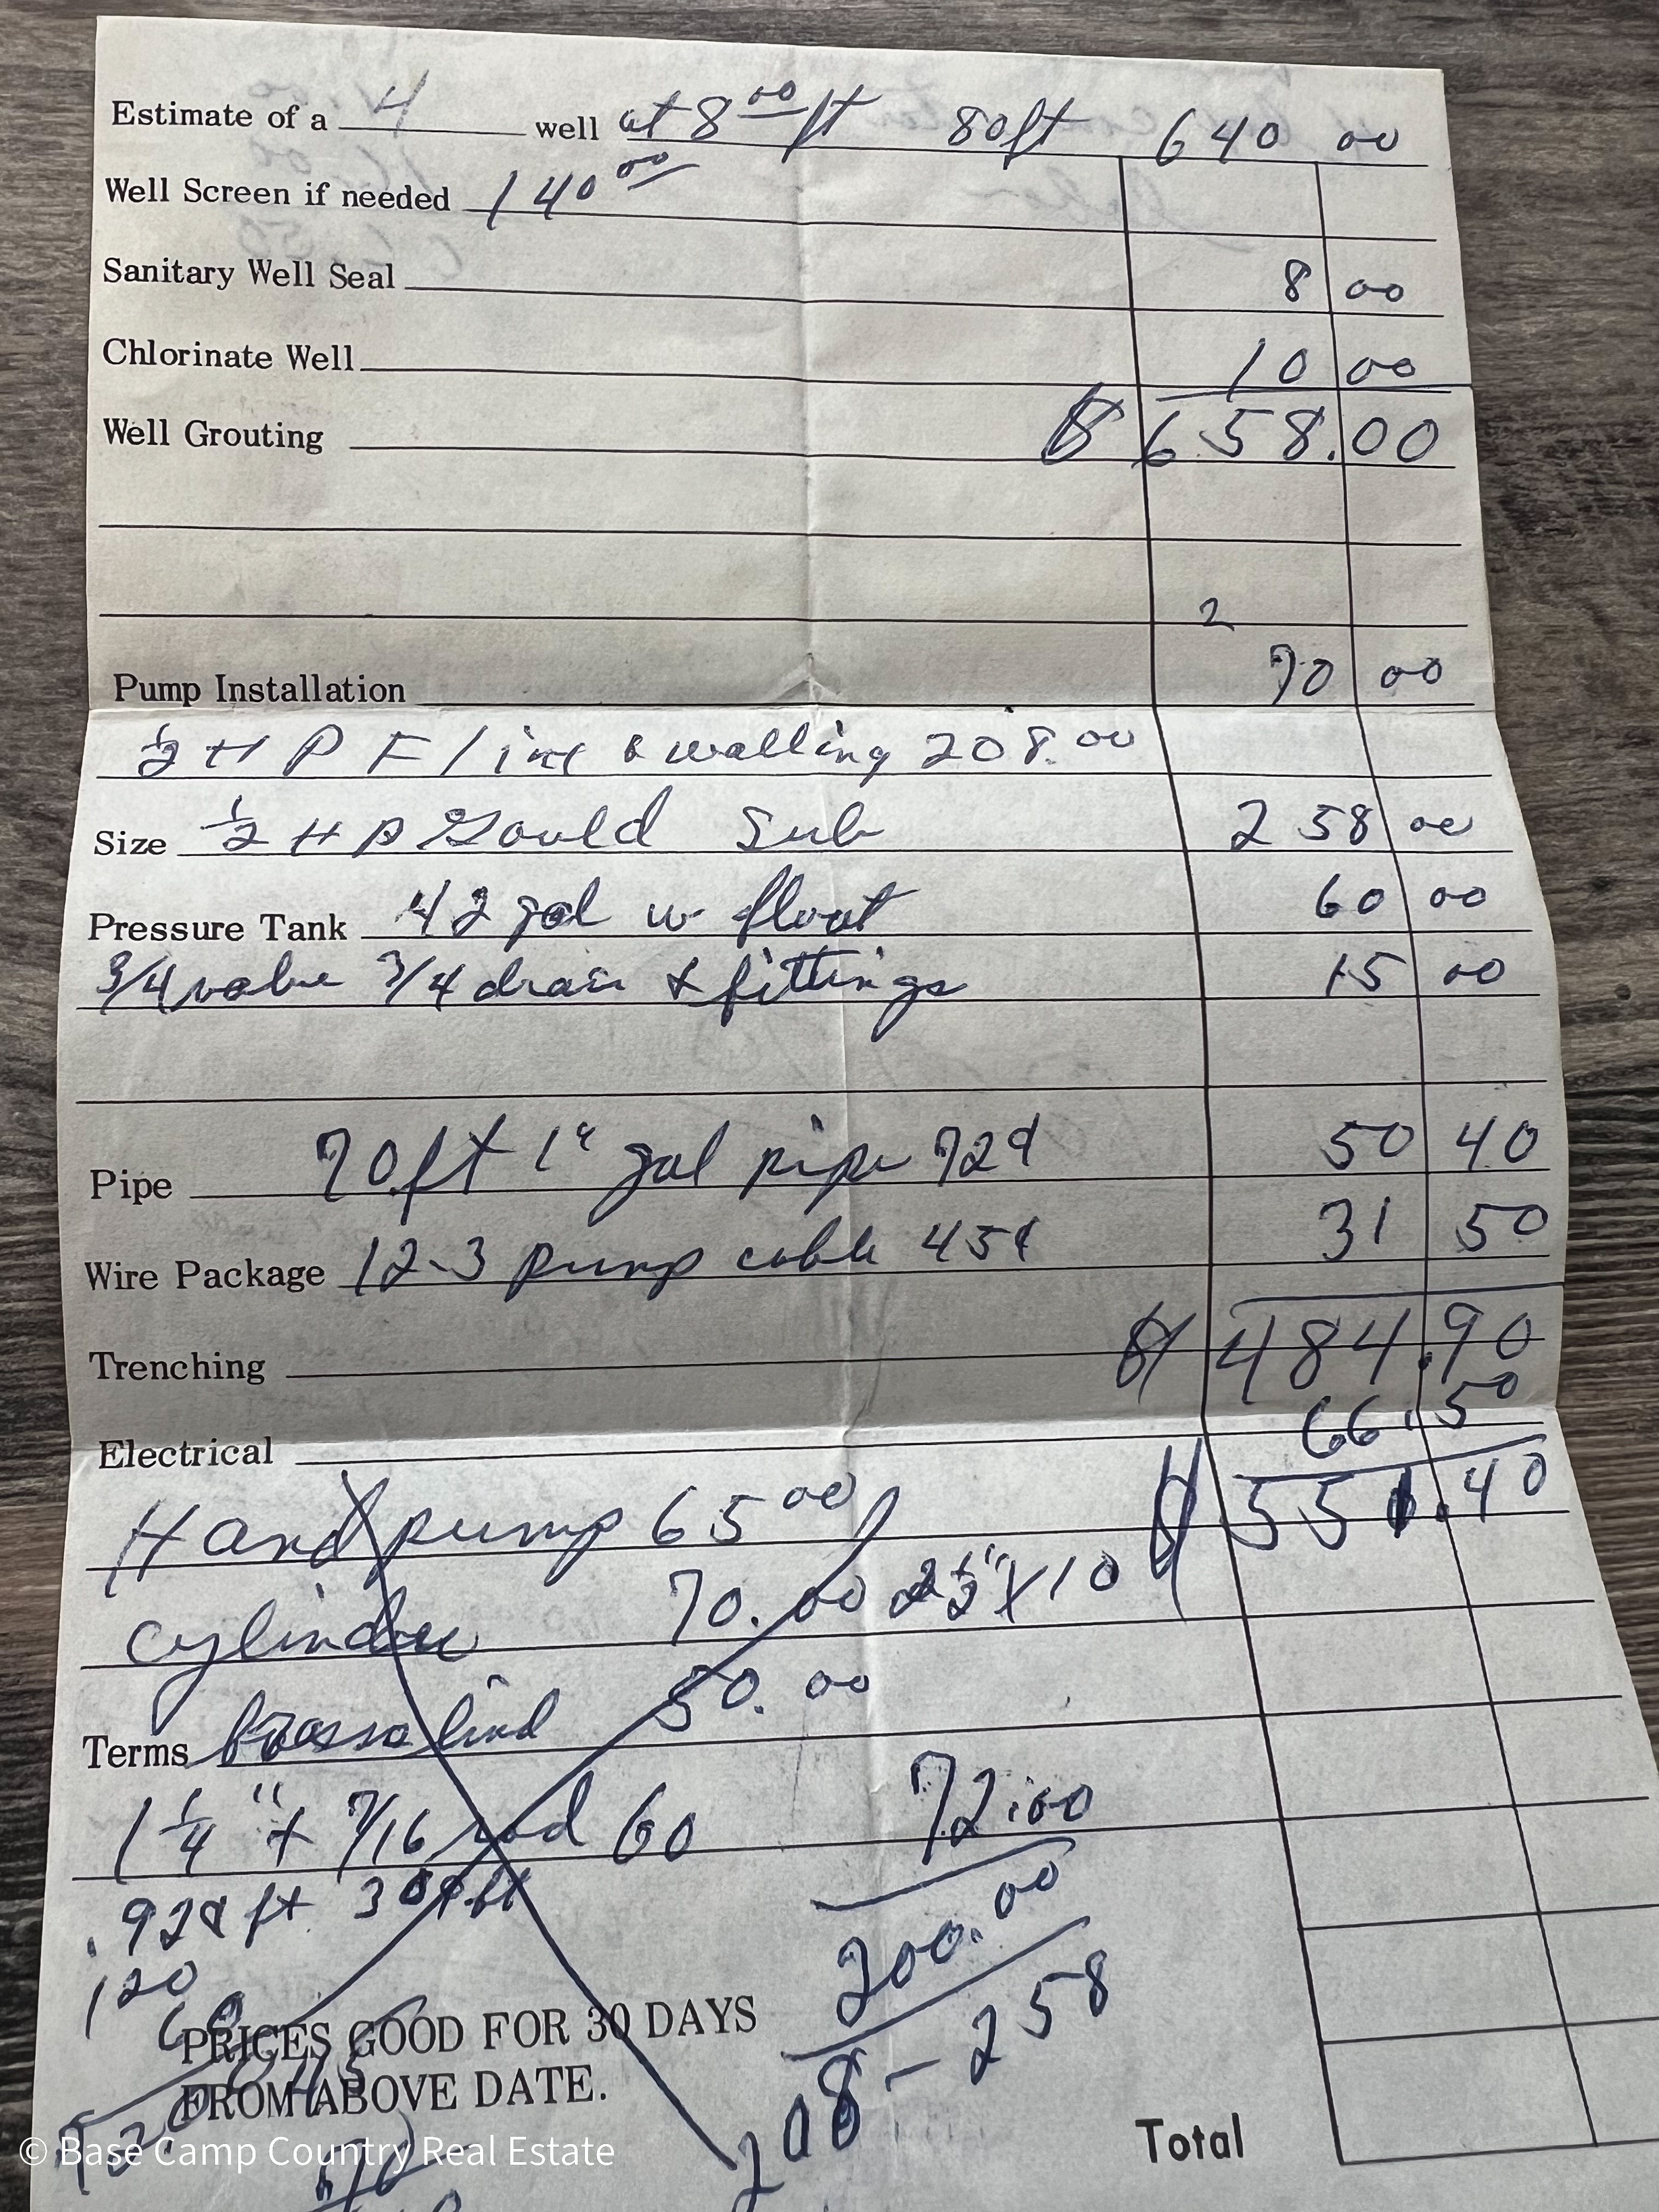 Estimate of a 4 well at 8 00 ft 80ft 640 00
Well Screen if needed 140 00
Sanitary Well Seal 8 00
Chlorinate Well 10 00
Well Grouting $ 658.00
2
Pump Installation 70 00
1/2 H P Flint & walling 208.00
Size 1/2 H P Gould Sub 258 00
Pressure Tank 42 gal w float 60 00
3/4 valve 3/4 drain & fittings 15 00
Pipe 70ft 1" gal pipe 72¢ 50 40
Wire Package 12-3 pump cable 45¢ 31 50
Trenching $ 484.90
66.50
Electrical
Hand pump 65 00 $ 551.40
cylinder 70.00 2 1/2" x 10
Terms brass lind 50.00
1 1/4" + 7/16 rod 60 72.00
.92¢ ft 30¢ ft 200.00
120
60
PRICES GOOD FOR 30 DAYS
FROM ABOVE DATE.
208-258
Total
© Base Camp Country Real Estate